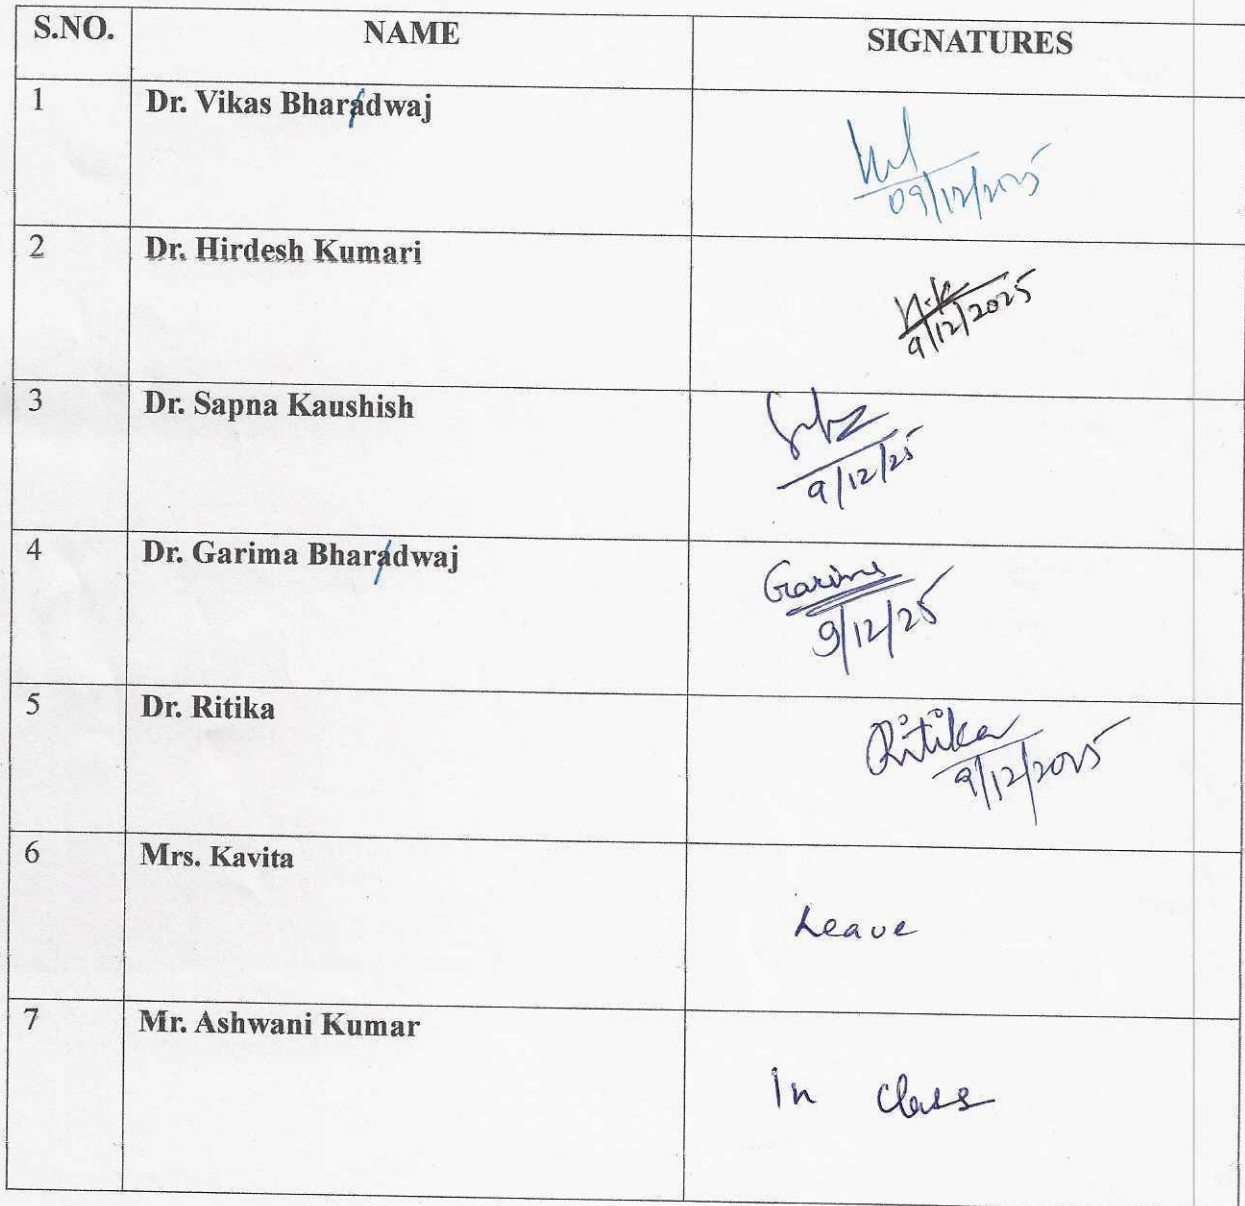 S.NO. NAME SIGNATURES
1 Dr. Vikas Bharadwaj
09/12/2025
2 Dr. Hirdesh Kumari
H.K
9/12/2025
3 Dr. Sapna Kaushish
9/12/25
4 Dr. Garima Bharadwaj
Garima
9/12/25
5 Dr. Ritika
Ritika
9/12/2025
6 Mrs. Kavita
Leave
7 Mr. Ashwani Kumar
In Class